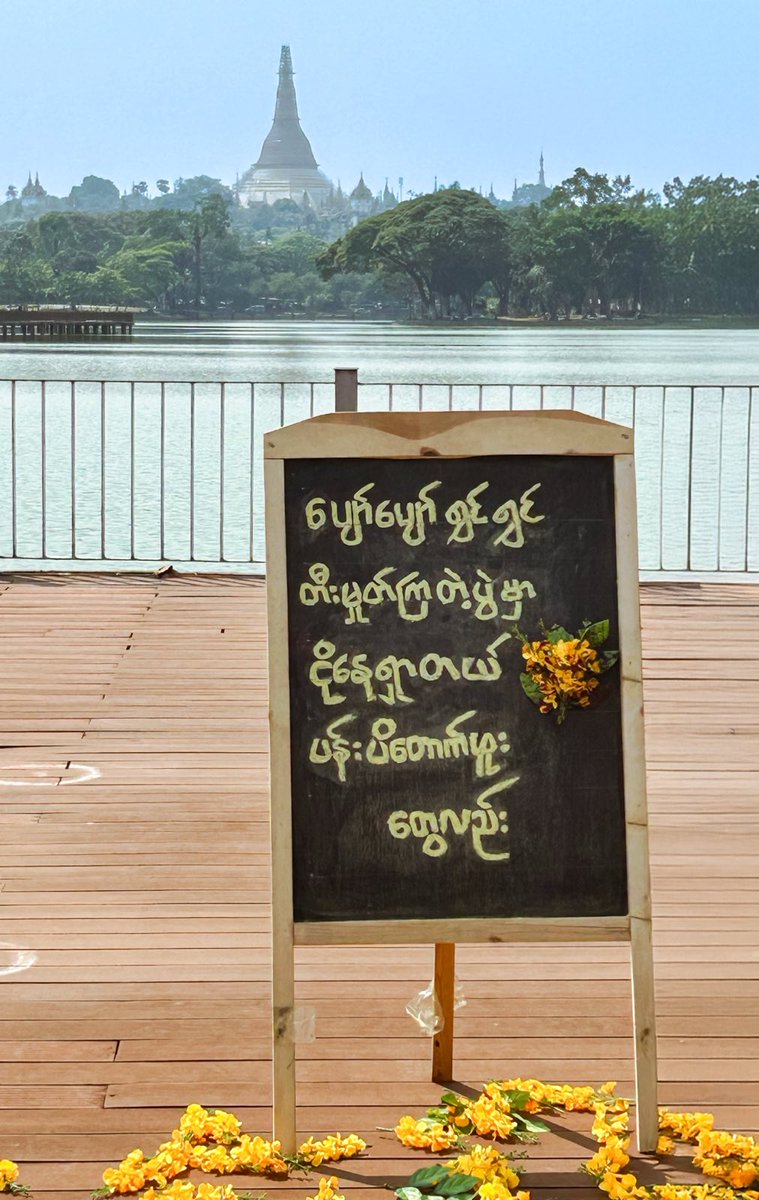 ပျော်ပျော်ရွှင်ရွှင်
တီးမှုတ်ကြတဲ့ပွဲမှာ
ငိုနေရှာတယ်
ပန်းပိတောက်ဖူး
တွေလည်း